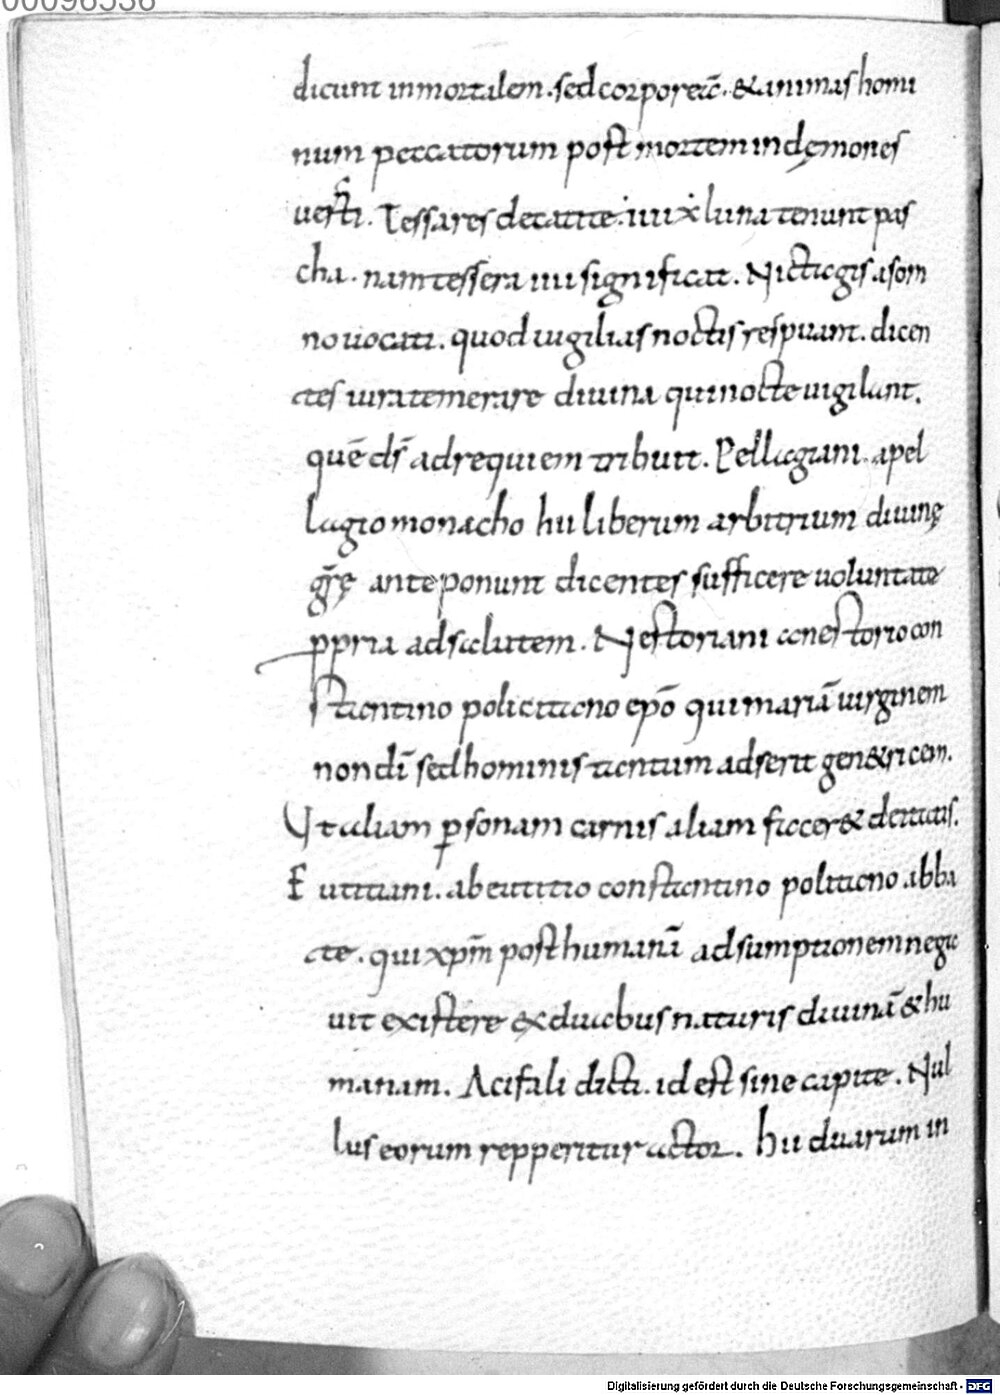 00096536
dicunt inmortalem. sed corporeā. & animas homi
num peccatorum post mortem in dęmones
uerti. Tessares decatite. iiii x luna tenunt pas
cha. nam tessera iiii significat. Nictagis a som
no uocati. quod uigilias noctis respuant. dicen
tes iura temerare diuina qui nocte uigilant.
quē ds̄ ad requiem tribuit. Pellagiani. a pel
lagio monacho hii liberum arbitrium diuinę
gr̄ę ante ponunt dicentes sufficere uoluntate
ppria ad salutem. Nestoriani a nestorio con
stantino policitano ep̄o qui mariā uirginem
non dī sed hominis tantum adserit gen&ricem.
Ut aliam p̱sonam carnis aliam facer& deitatis.
Eutitiani. ab eutitio constantino politano abba
te. qui xp̄m post humanā adsumptionem nega
uit existere ex duabus naturis diuinā & hu
manam. Acifali dicti. id est sine capite. Nul
lus eorum repperitur actor. hii duarum in
Digitalisierung gefördert durch die Deutsche Forschungsgemeinschaft - DFG